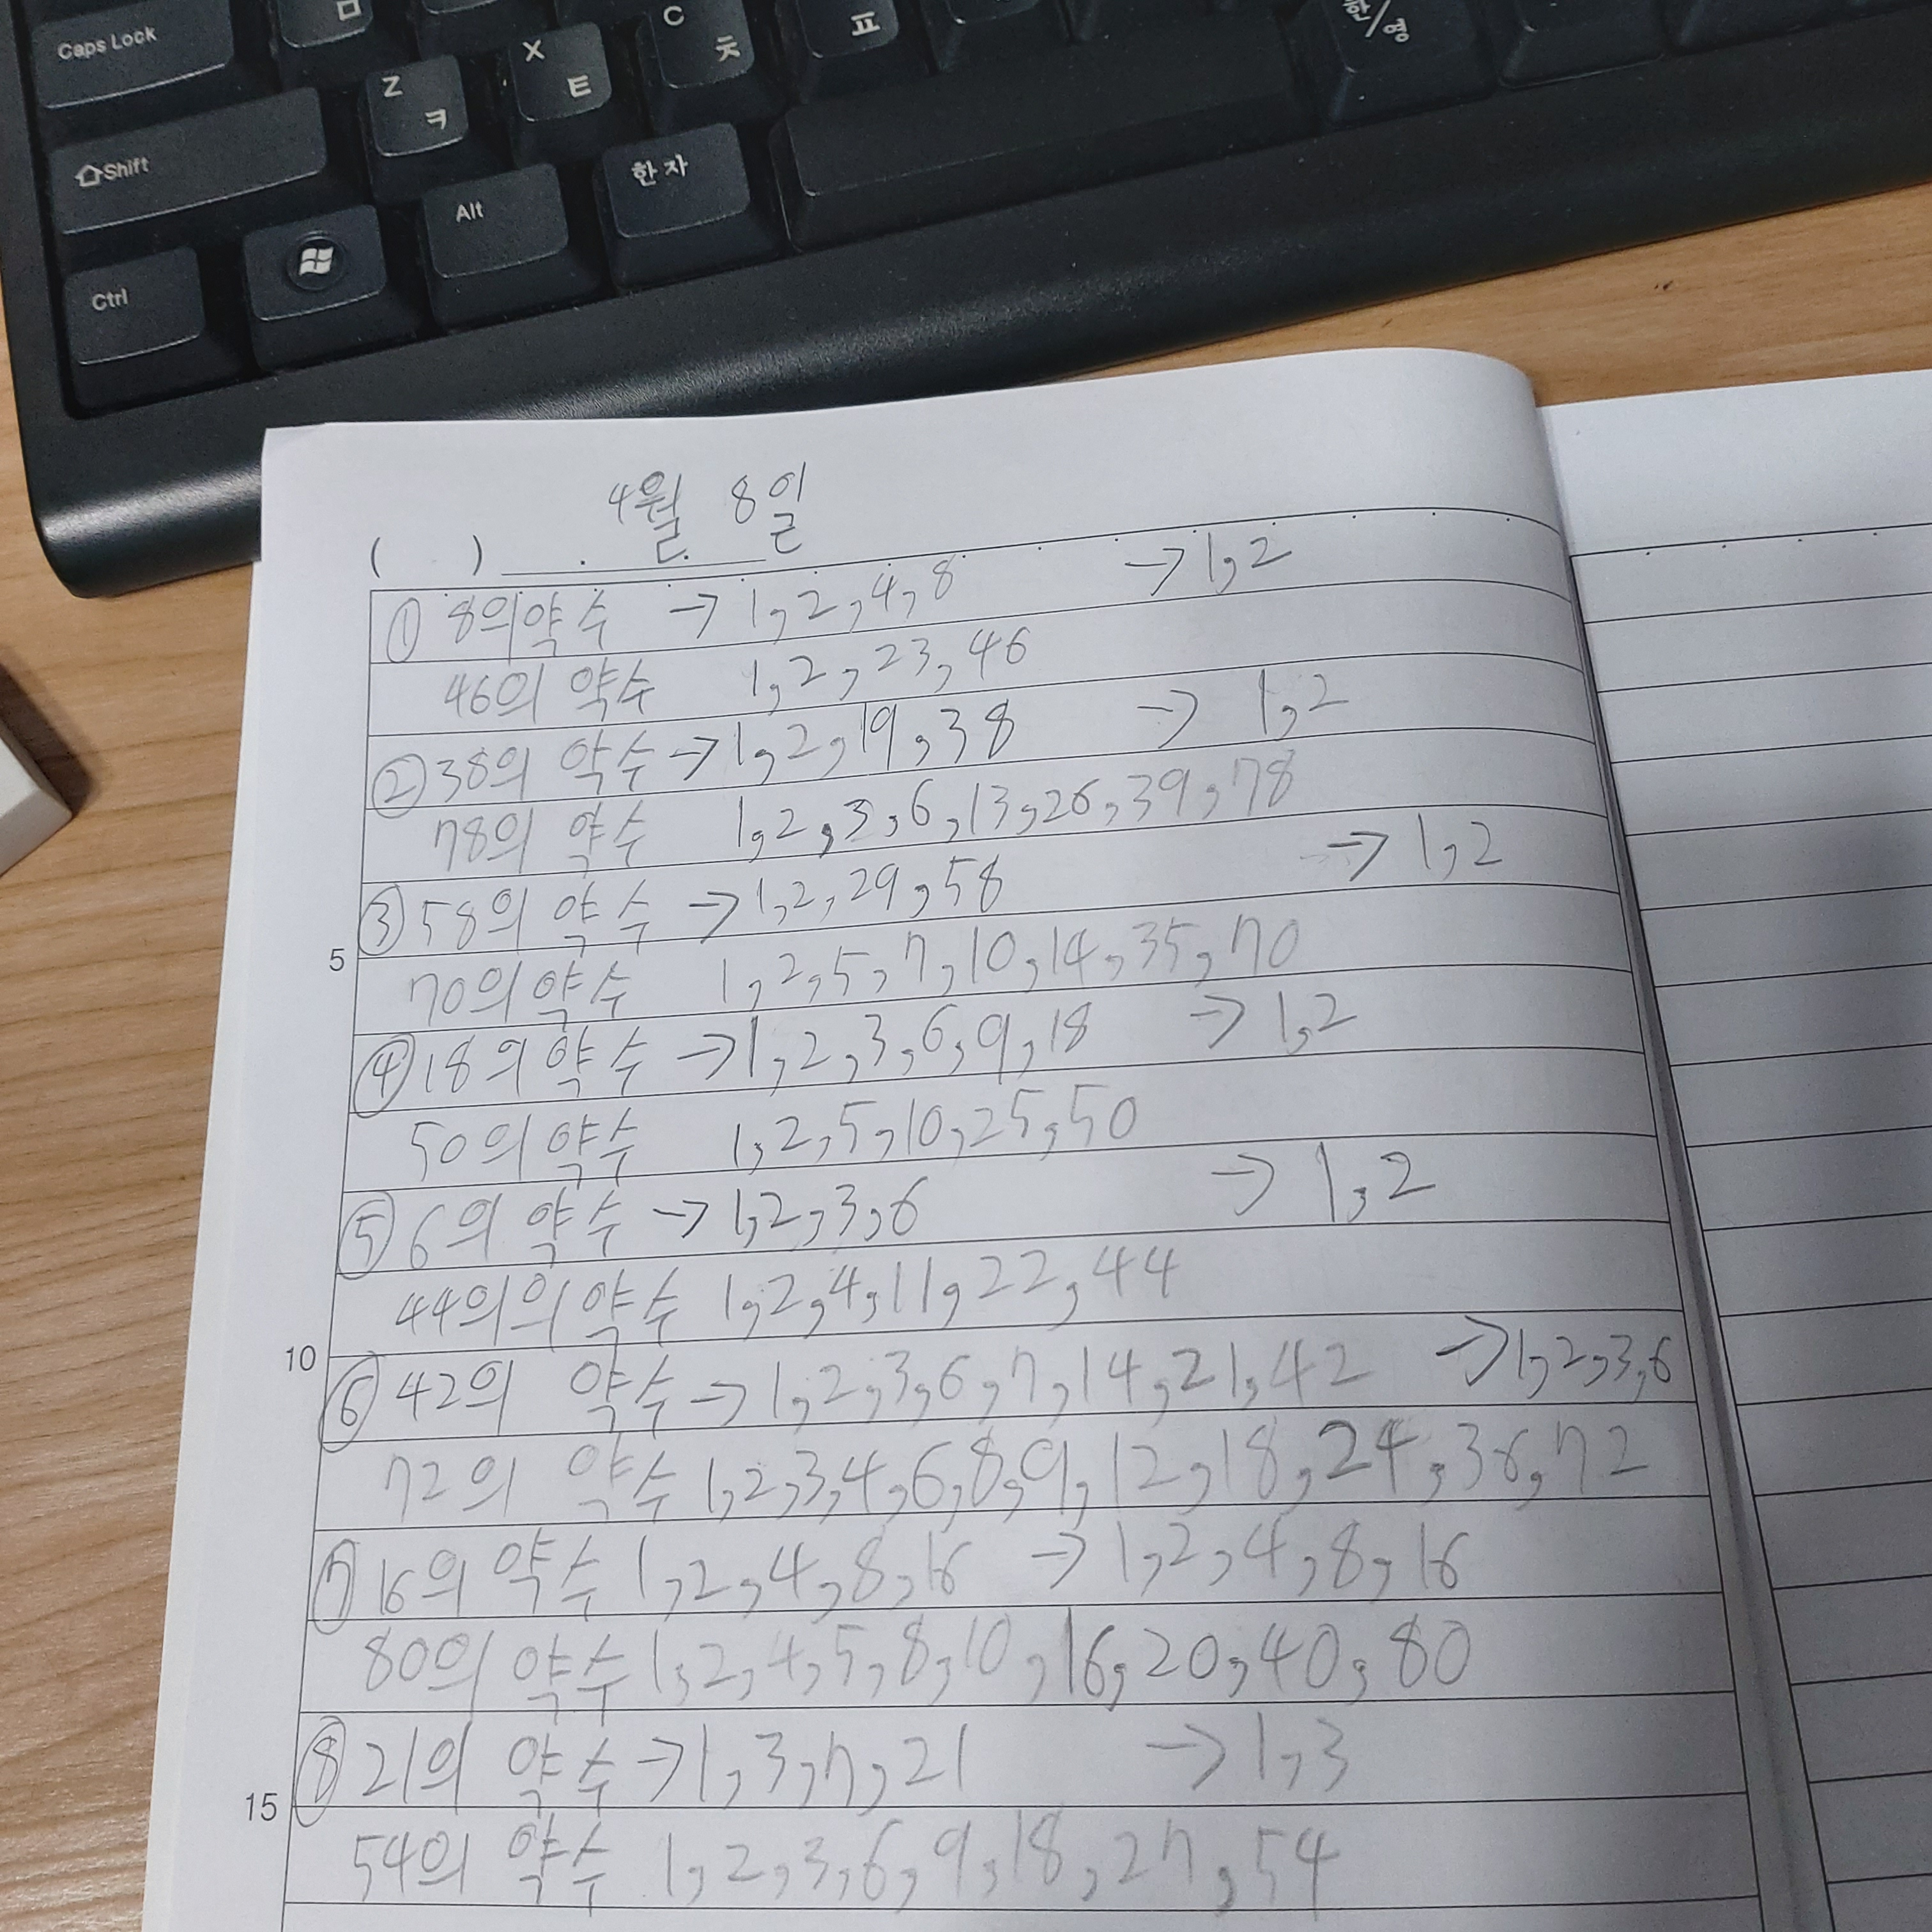 ㅁ C ㅊ ㅍ 한/영
Caps Lock Z ㅋ X ㅌ
Shift Alt 한자
Ctrl
4월 8일
( ) . .
① 8의약수 → 1,2,4,8 → 1,2
46의 약수 1,2,23,46
② 38의 약수 → 1,2,19,38 → 1,2
78의 약수 1,2,3,6,13,26,39,78
③ 58의 약수 → 1,2,29,58 → 1,2
5
70의약수 1,2,5,7,10,14,35,70
④ 18의 약수 → 1,2,3,6,9,18 → 1,2
50의 약수 1,2,5,10,25,50
⑤ 6의 약수 → 1,2,3,6 → 1,2
44의의 약수 1,2,4,11,22,44
10
⑥ 42의 약수 → 1,2,3,6,7,14,21,42 → 1,2,3,6
72의 약수 1,2,3,4,6,8,9,12,18,24,36,72
⑦ 16의 약수 1,2,4,8,16 → 1,2,4,8,16
80의 약수 1,2,4,5,8,10,16,20,40,80
⑧ 21의 약수 → 1,3,7,21 → 1,3
15
54의 약수 1,2,3,6,9,18,27,54